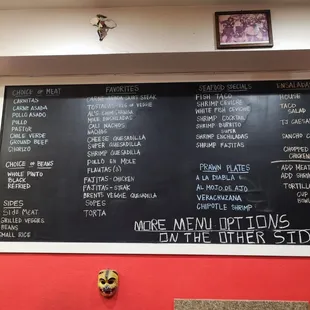 CHOICE OF MEAT
CARNITAS
CARNE ASADA
POLLO ASADO
POLLO
PASTOR
CHILE VERDE
GROUND BEEF
CHORIZO
CHOICE OF BEANS
WHOLE PINTO
BLACK
REFRIED
SIDES
SIDE MEAT
GRILLED VEGGIES
BEANS
SMALL RICE
FAVORITES
CARNE ASADA STEAK
MOLE ENCHILADAS
CALI NACHOS
NACHOS
CHEESE QUESADILLA
SUPER QUESADILLA
SHRIMP QUESADILLA
POLLO EN MOLE
FLAUTAS
FAJITAS - CHICKEN
FAJITAS - STEAK
BRENTS VEGGIE QUESADILLA
SOPES
TORTA
SEAFOOD SPECIALS
FISH TACO
SHRIMP CEVICHE
WHITE FISH CEVICHE
SHRIMP COCKTAIL
SHRIMP BURRITO
SUPER
SHRIMP ENCHILADAS
PRAWN PLATES
A LA DIABLA
AL MOJO DE AJO
VERACRUZANA
CHIPOTLE SHRIMP
ENSALADA
HOUSE
TACO
SALAD
TJ CAESAR
SANCHO
CHOPPED
CHICKEN
ADD MEAT
ADD SHR
TORTILL
CUP
BOWL
MORE MENU OPTIONS
ON THE OTHER SID